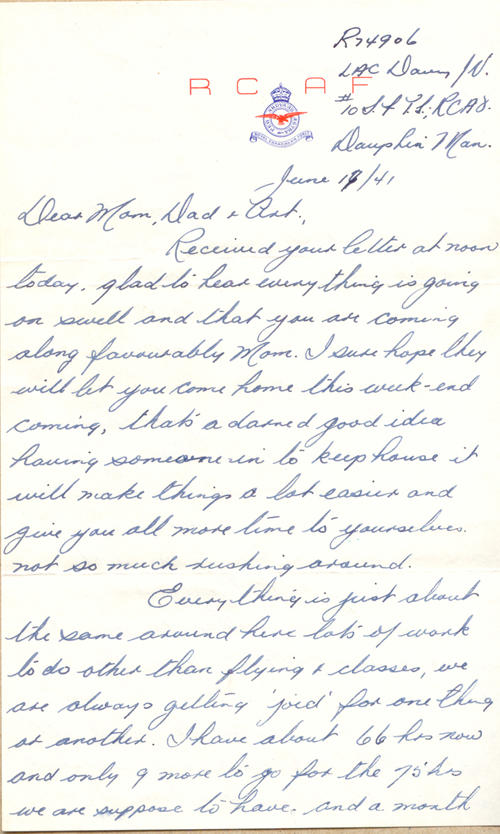 R74906
LAC Davis J.N.
R C A F
#10 S.F.T.S., RCAF.
Dauphin Man.
ROYAL CANADIAN AIR FORCE
June 17/41
Dear Mom, Dad & Art.,
Received your letter at noon
today. glad to hear everything is going
on swell and that you are coming
along favourably Mom. I sure hope they
will let you come home this week-end
coming, that's a darned good idea
having someone in to keep house it
will make things a lot easier and
give you all more time to yourselves.
not so much rushing around.
Everything is just about
the same around here lots of work
to do other than flying & classes, we
are always getting 'joid' for one thing
or another. I have about 66 hrs now
and only 9 more to go for the 75 hrs
we are suppose to have. and a month